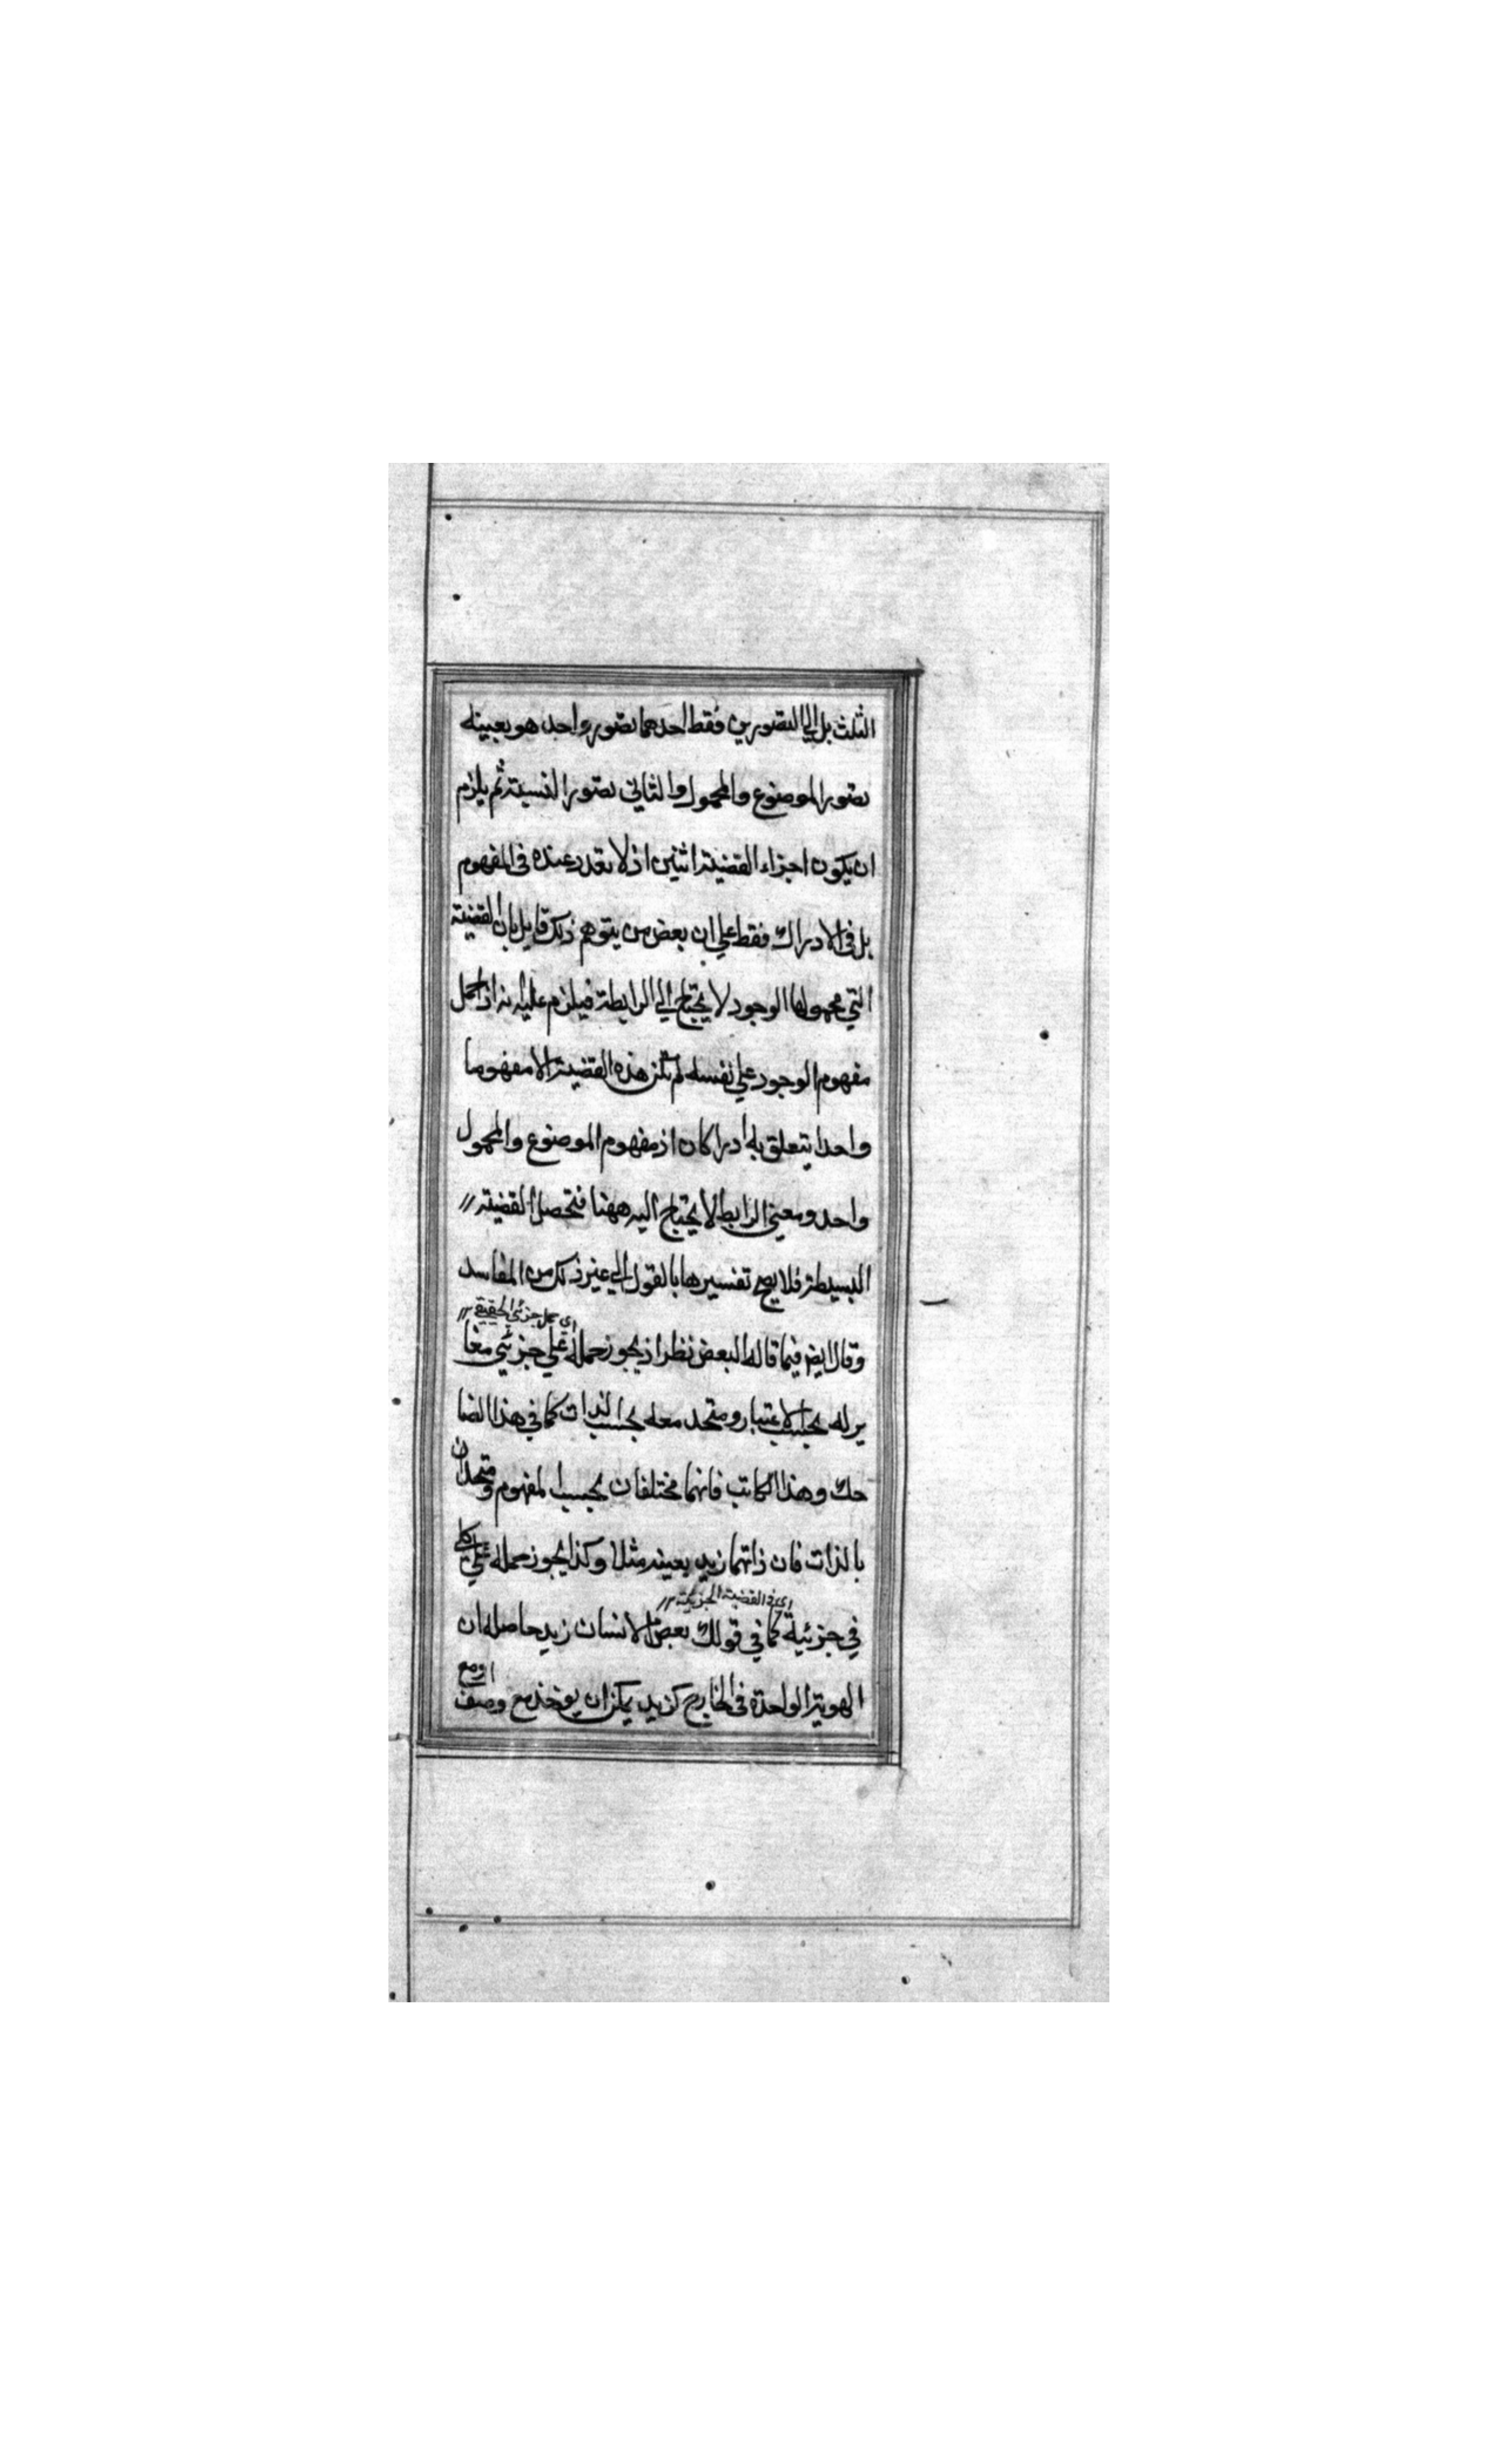 الثلث بل الى التصورين فقط احدهما تصور واحد هو بعينه
تصور الموضوع والمحمول والثاني تصور النسبة ثم يلزم
ان يكون اجزاء القضية اثنين اذ لا تعدد عنده في المفهوم
بل في الادراك فقط على ان بعض من يتوهم ذلك قايل بان القضية
التي محمولها الوجود لا يحتاج الى الرابطة فيلزم عليه انه اذا حمل
مفهوم الوجود على نفسه لم تكن هذه القضية الا مفهوما
واحدا يتعلق به ادراكان اذ مفهوم الموضوع والمحمول
واحد ومعنى الرابط لا يحتاج اليه ههنا فتحصل القضية
البسيطة فلا يصح تفسيرها بالقول الى غير ذلك من المفاسد
اي حمل جزئي الحقيقي
وقال ايض فيما قاله البعض نظر اذ يجوز حمله على جزئي مغا
ير له بحسب الاعتبار ومتحد معه بحسب الذات كما في هذا الضا
حك وهذا الكاتب فانهما مختلفان بحسب المفهوم ومتحدان
بالذات فان ذاتهما زيد بعينه مثلا وكذا يجوز حمله على كلي
اي في القضية الجزئية
في جزئية كما في قولك بعض الانسان زيد حاصله ان
الهوية الواحدة في الخارج كزيد يمكن ان يوخذ مع وصف
او مع